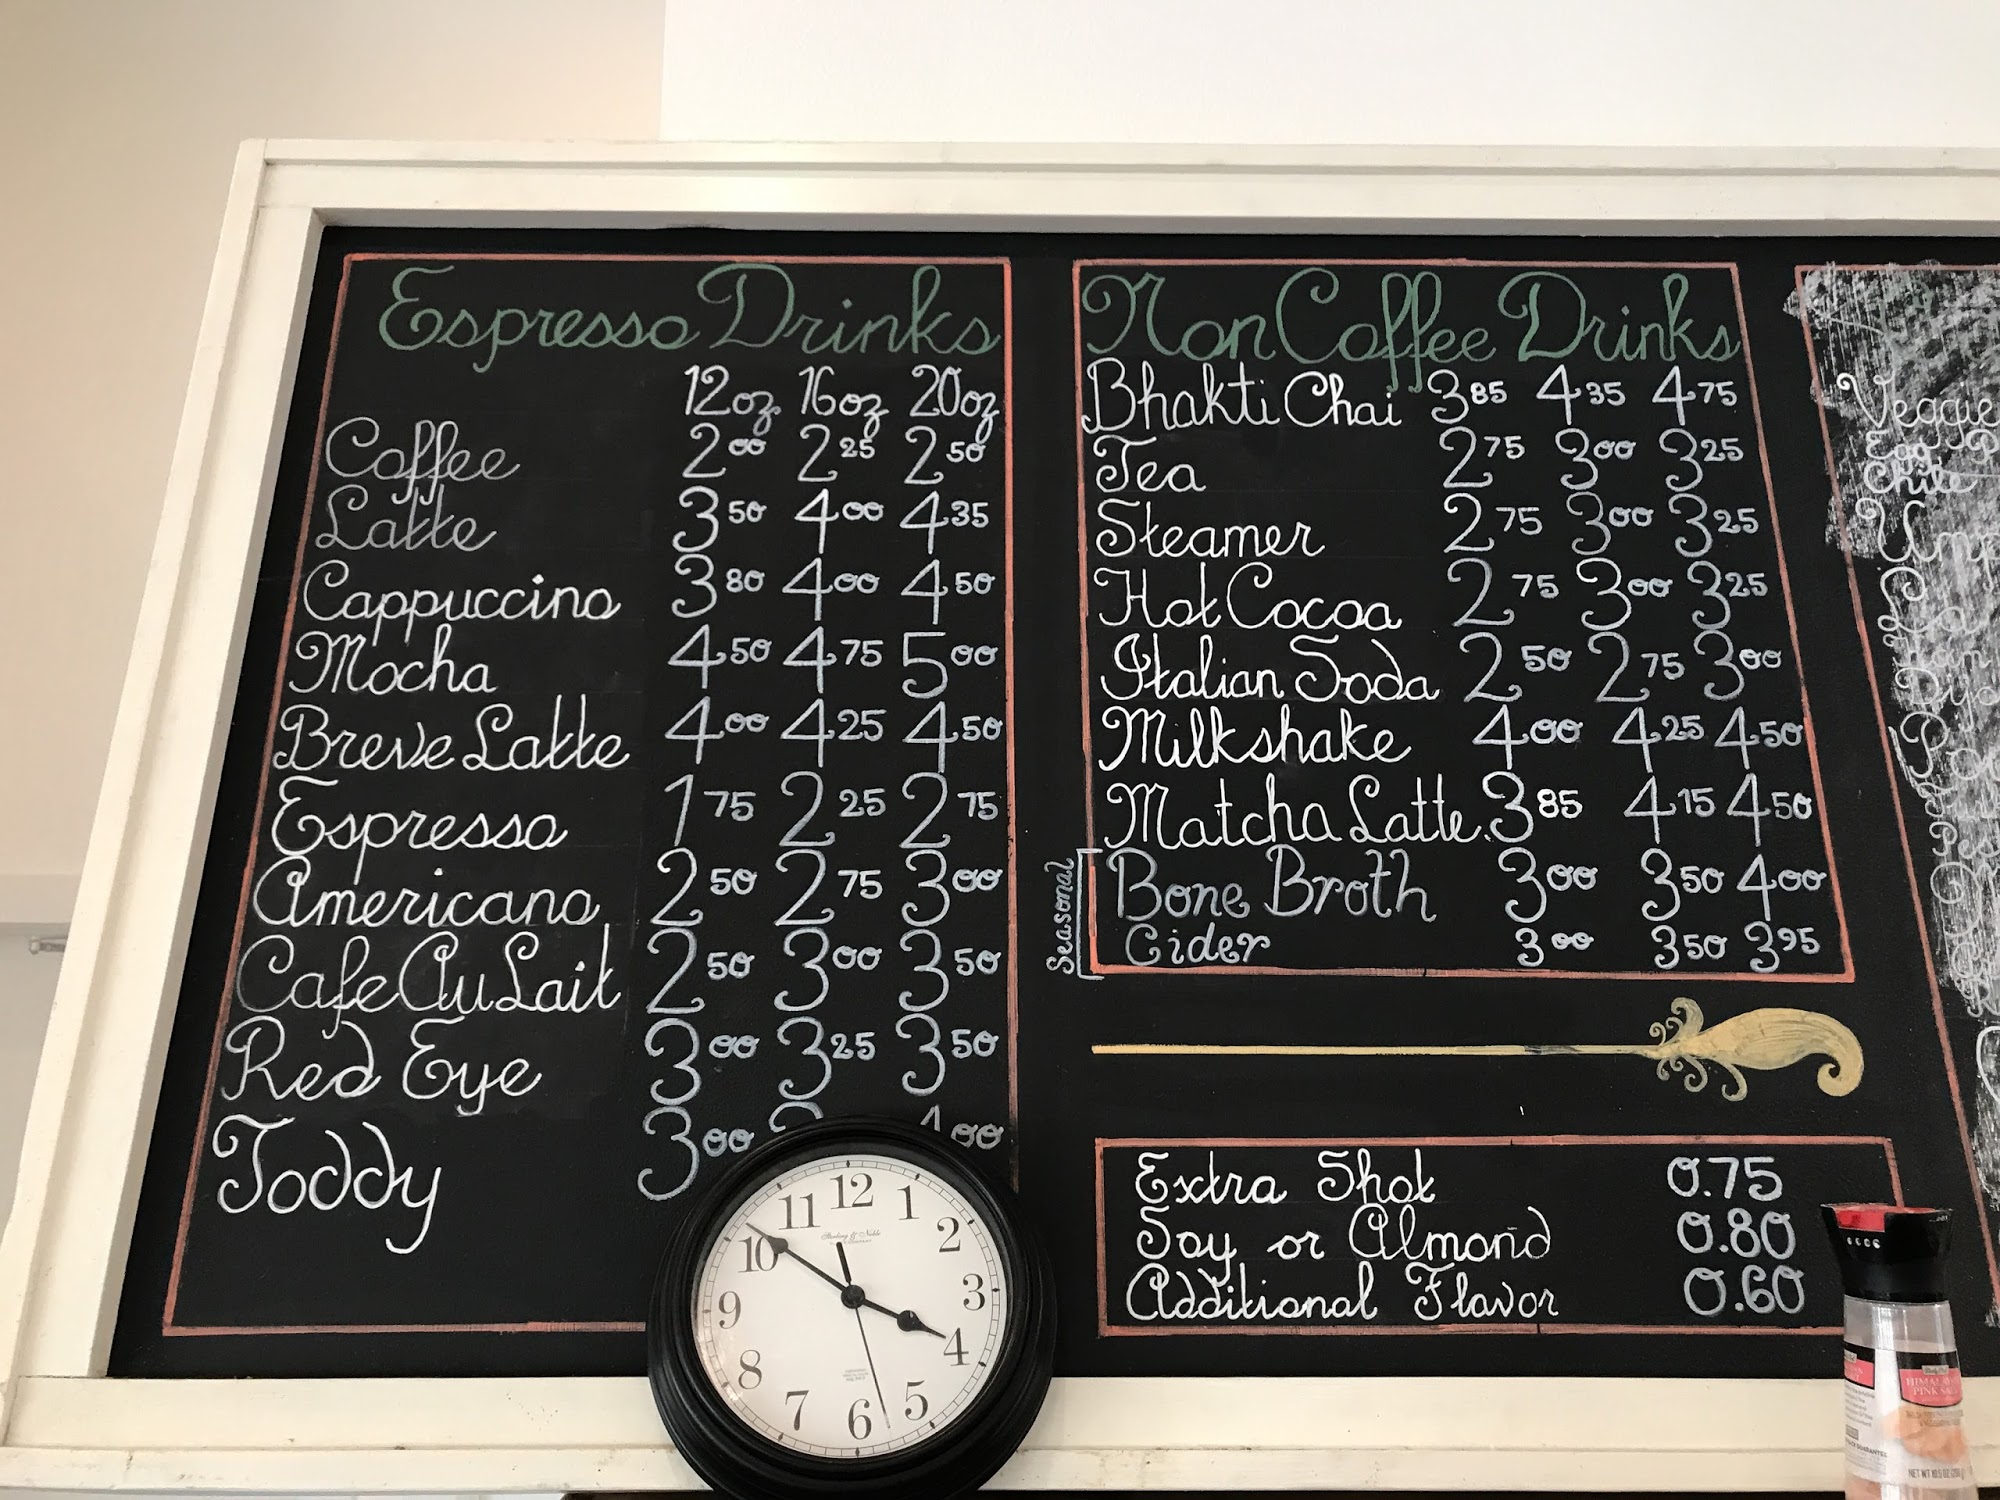 Espresso Drinks
12oz 16oz 20oz
Coffee 2.00 2.25 2.50
Latte 3.50 4.00 4.35
Cappuccino 3.80 4.00 4.50
Mocha 4.50 4.75 5.00
Breve Latte 4.00 4.25 4.50
Espresso 1.75 2.25 2.75
Americano 2.50 2.75 3.00
Cafe Au Lait 2.50 3.00 3.50
Red Eye 3.00 3.25 3.50
Toddy 3.00 4.00
Non Coffee Drinks
Bhakti Chai 3.85 4.35 4.75
Tea 2.75 3.00 3.25
Steamer 2.75 3.00 3.25
Hot Cocoa 2.75 3.00 3.25
Italian Soda 2.50 2.75 3.00
Milkshake 4.00 4.25 4.50
Matcha Latte 3.85 4.15 4.50
Seasonal
Bone Broth 3.00 3.50 4.00
Cider 3.00 3.50 3.95
Extra Shot 0.75
Soy or Almond 0.80
Additional Flavor 0.60
Veggie
Egg
Chile
12 1 2 3 4 5 6 7 8 9 10 11
Sterling & Noble
HIMALAYAN
PINK SALT